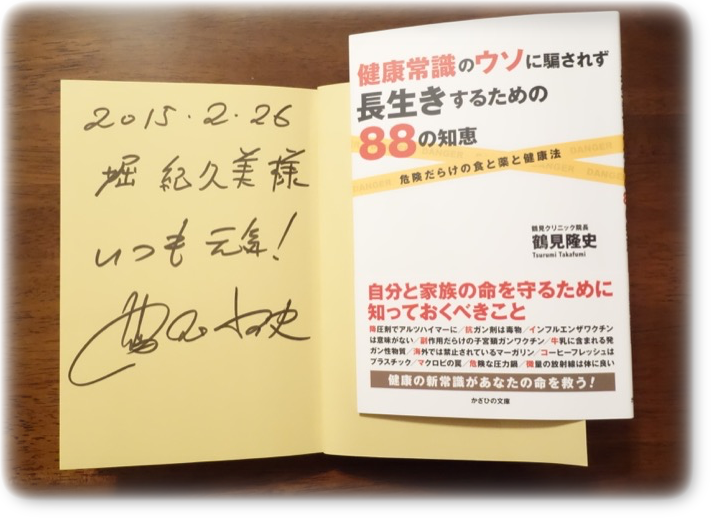 2015.2.26
堀 紀久美様
いつも 元気!
健康常識のウソに騙されず
長生きするための
88の知恵
DANGER DANGER
危険だらけの食と薬と健康法
鶴見クリニック院長
鶴見隆史
Tsurumi Takafumi
自分と家族の命を守るために
知っておくべきこと
降圧剤でアルツハイマーに/抗ガン剤は毒物/インフルエンザワクチン
は意味がない/副作用だらけの子宮頸ガンワクチン/牛乳に含まれる発
ガン性物質/海外では禁止されているマーガリン/コーヒーフレッシュは
プラスチック/マクロビの罠/危険な圧力鍋/微量の放射線は体に良い
健康の新常識があなたの命を救う!
かざひの文庫